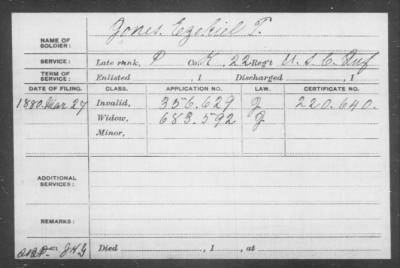 NAME OF SOLDIER: Jones, Ezekiel T.
SERVICE: Late rank, P Co. K, 22 Reg't U.S.C. Inf
TERM OF SERVICE: Enlisted , 1 Discharged , 1
DATE OF FILING. CLASS. APPLICATION NO. LAW. CERTIFICATE NO.
1880 Mar 27 Invalid, 356.629 J 220.640.
Widow, 683.592 J
Minor,
ADDITIONAL SERVICES:
REMARKS:
Died , 1 , at